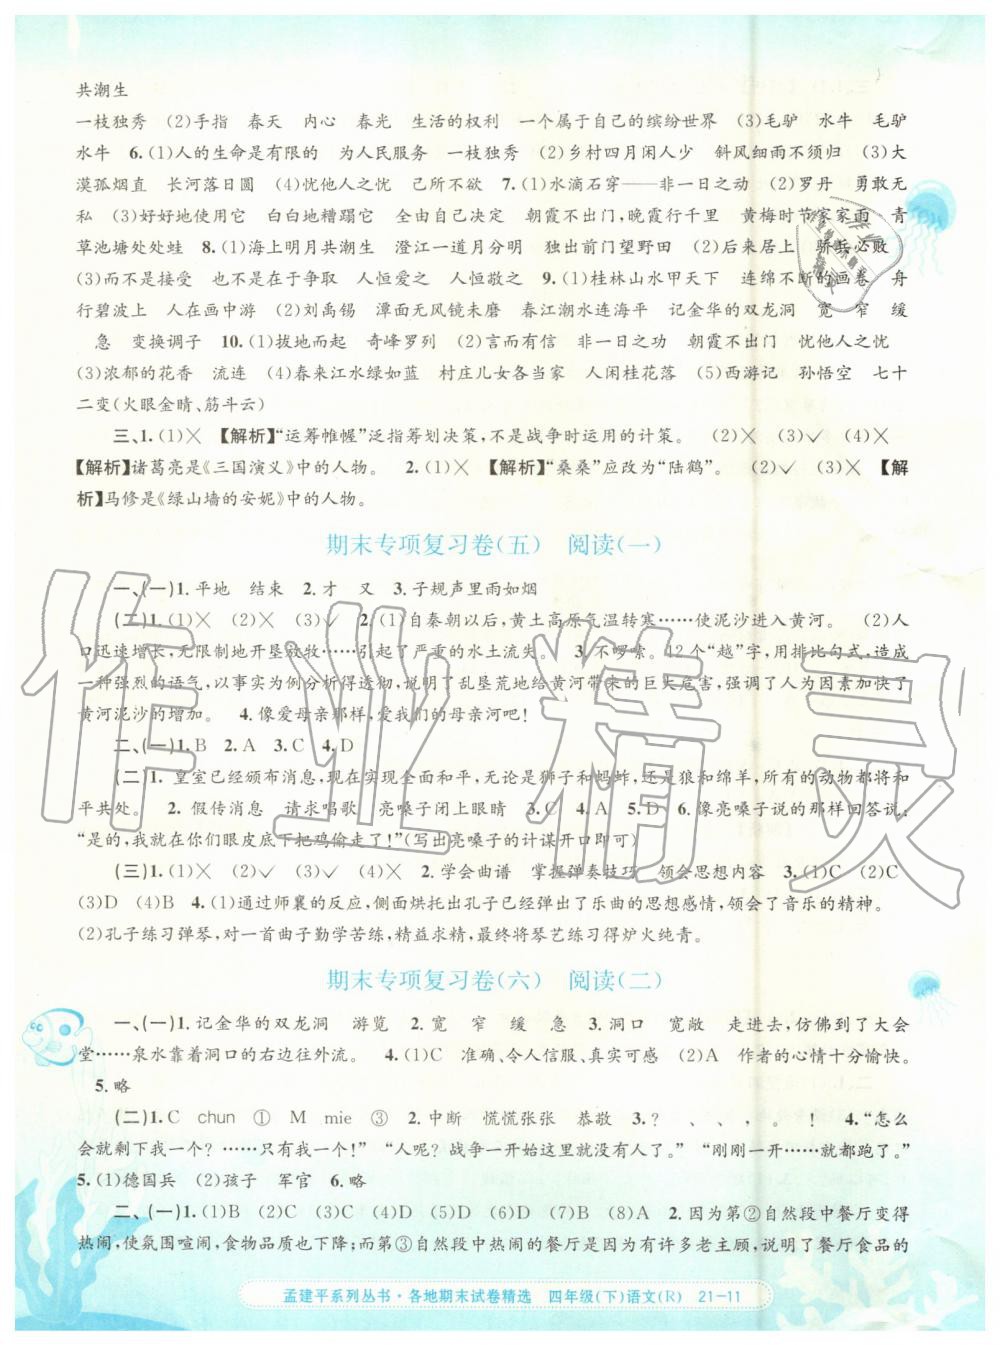 共潮生
一枝独秀　(2)手指　春天　内心　春光　生活的权利　一个属于自己的缤纷世界　(3)毛驴　水牛　毛驴
水牛　6.(1)人的生命是有限的　为人民服务　一枝独秀　(2)乡村四月闲人少　斜风细雨不须归　(3)大
漠孤烟直　长河落日圆　(4)忧他人之忧　己所不欲　7.(1)水滴石穿——非一日之动　(2)罗丹　勇敢无
私　(3)好好地使用它　白白地糟蹋它　全由自己决定　朝霞不出门,晚霞行千里　黄梅时节家家雨　青
草池塘处处蛙　8.(1)海上明月共潮生　澄江一道月分明　独出前门望野田　(2)后来居上　骄兵必败
(3)而不是接受　也不在于争取　人恒爱之　人恒敬之　9.(1)桂林山水甲天下　连绵不断的画卷　舟
行碧波上　人在画中游　(2)刘禹锡　潭面无风镜未磨　春江潮水连海平　记金华的双龙洞　宽　窄　缓
急　变换调子　10.(1)拔地而起　奇峰罗列　(2)言而有信　非一日之功　朝霞不出门　忧他人之忧
(3)浓郁的花香　流连　(4)春来江水绿如蓝　村庄儿女各当家　人闲桂花落　(5)西游记　孙悟空　七十
二变(火眼金睛、筋斗云)
三、1.(1)×　【解析】“运筹帷幄”泛指筹划决策,不是战争时运用的计策。　(2)×　(3)✓　(4)×
【解析】诸葛亮是《三国演义》中的人物。　2.(1)×　【解析】“桑桑”应改为“陆鹤”。　(2)✓　(3)×　【解
析】马修是《绿山墙的安妮》中的人物。
期末专项复习卷(五)　阅读(一)
一、(一)1.平地　结束　2.才　又　3.子规声里雨如烟
(二)1.(1)×　(2)×　(3)✓　2.(1)自秦朝以后,黄土高原气温转寒……使泥沙进入黄河。　(2)人
口迅速增长,无限制地开垦放牧……引起了严重的水土流失。　3.不啰嗦。12个“越”字,用排比句式,造成
一种强烈的语气,以事实为例分析得透彻,揭示了乱垦荒地给黄河带来的巨大危害,强调了人为因素加快了
黄河泥沙的增加。　4.像爱母亲那样,爱我们的母亲河吧!
二、(一)1.B　2.A　3.C　4.D
(二)1.皇室已经颁布消息,现在实现全面和平,无论是狮子和蚂蚱,还是狼和绵羊,所有的动物都将和
平共处。　2.假传消息　请求唱歌　亮嗓子闭上眼睛　3.C　4.A　5.D　6.像亮嗓子说的那样回答说:
“是的,我就在你们眼皮底下把鸡偷走了!”(写出亮嗓子的计谋开口即可)
(三)1.(1)×　(2)✓　(3)✓　(4)×　2.学会曲谱　掌握弹奏技巧　领会思想内容　3.(1)C　(2)C
(3)D　(4)B　4.(1)通过师襄的反应,侧面烘托出孔子已经弹出了乐曲的思想感情,领会了音乐的精神。
(2)孔子练习弹琴,对一首曲子勤学苦练,精益求精,最终将琴艺练习得炉火纯青。
期末专项复习卷(六)　阅读(二)
一、(一)1.记金华的双龙洞　游览　2.宽　窄　缓　急　3.洞口　宽敞　走进去,仿佛到了大会
堂……泉水靠着洞口的右边往外流。　4.(1)C　准确、令人信服、真实可感　(2)A　作者的心情十分愉快。
5.略
(二)1.C　chun　①　M　mie　③　2.中断　慌慌张张　恭敬　3.?　、　、　,　。　!　4.“怎么
会就剩下我一个?……只有我一个!”　“人呢?战争一开始……”　“刚刚一开……就都跑了。”
5.(1)德国兵　(2)孩子　军官　6.略
二、(一)1.(1)B　(2)C　(3)C　(4)D　(5)D　(6)B　(7)B　(8)A　2.因为第②自然段中餐厅变得
热闹,使氛围喧闹,食物品质也下降;而第③自然段中热闹的餐厅是因为有许多老主顾,说明了餐厅食品的
孟建平系列丛书·各地期末试卷精选　四年级(下)语文(R)　21-11
作业精灵